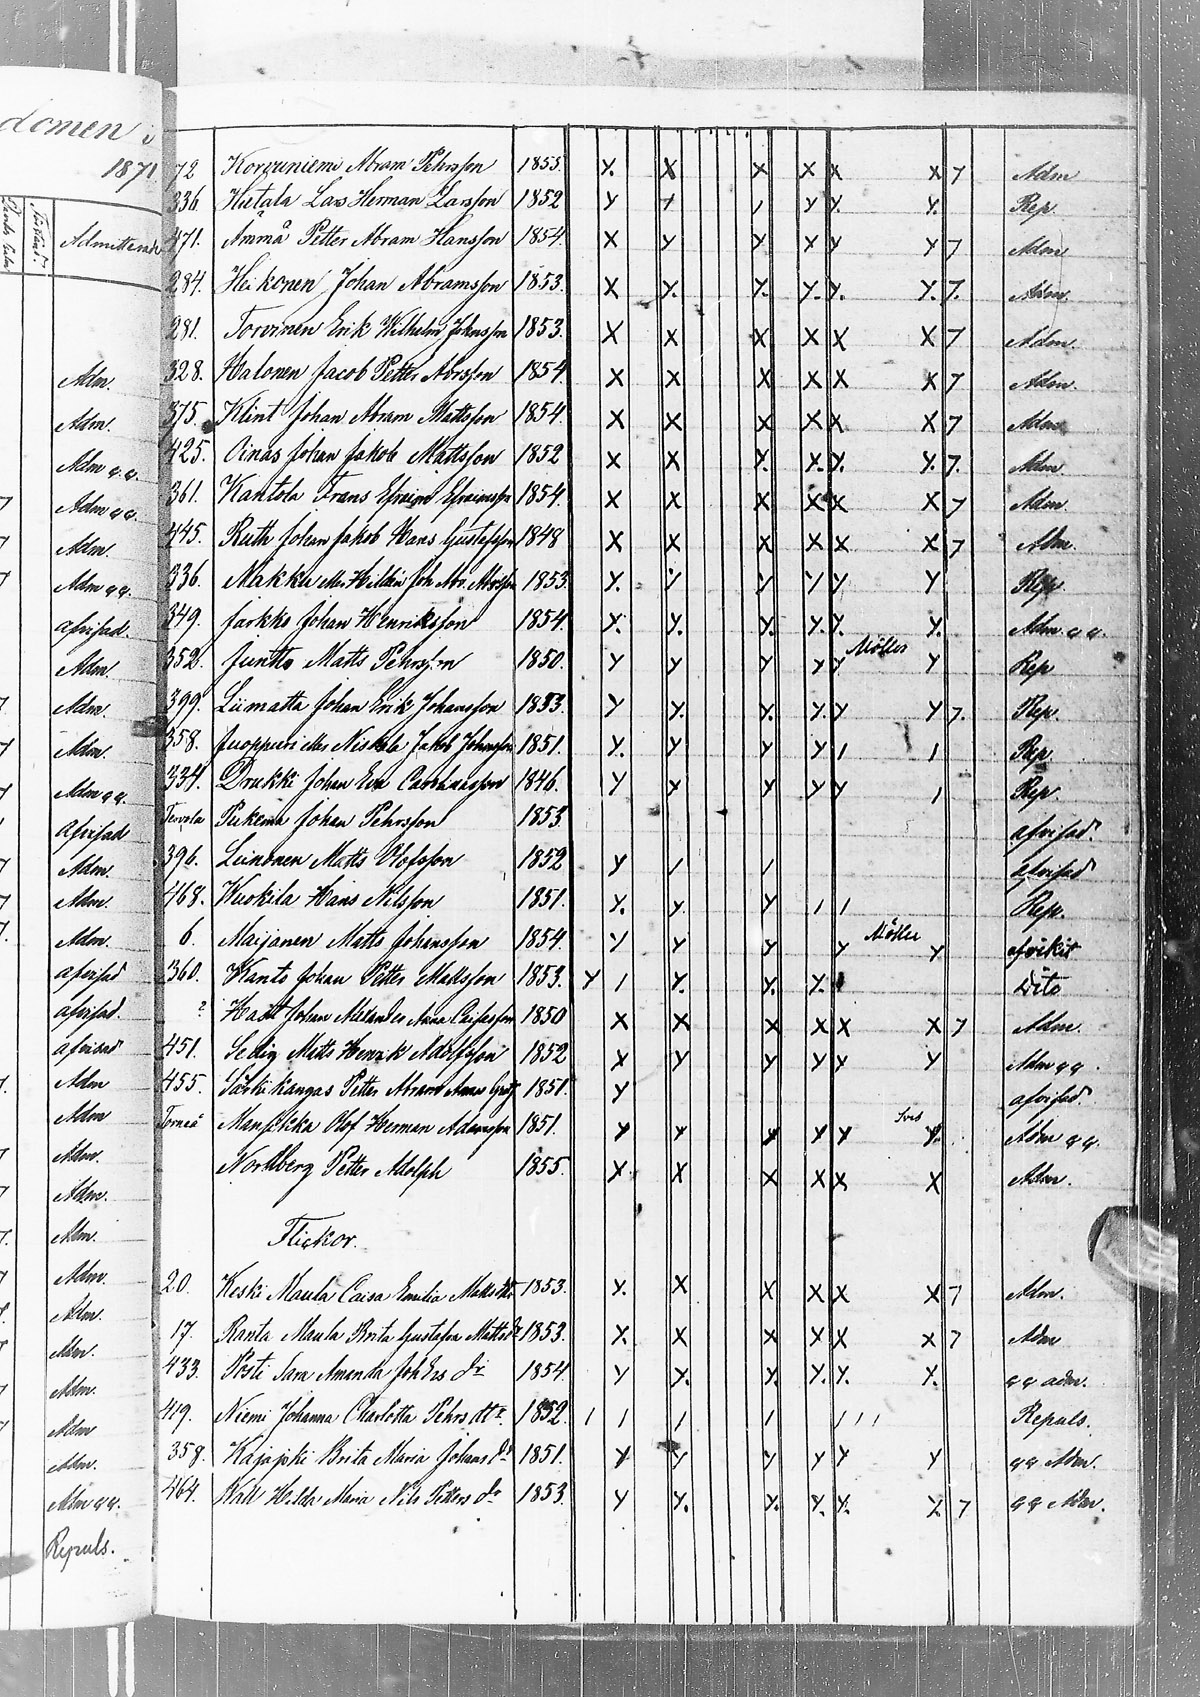 domen i
1871
Admitterade
Adm.
Adm.
Adm q.q.
Adm q.q.
Adm.
Adm q.q.
afvisad.
Adm.
Adm.
Adm.
Adm q.q.
afvisad
Adm.
Adm.
Adm.
afvisad
afvisad.
afvisad
Adm
Adm
Adm.
Adm.
Adm.
Adm.
Adm.
Adm.
Adm.
Adm
Adm.
Adm q.q.
Repuls.
72 Korpuniemi Abram Pehrsson 1855. X. X X X X X 7 Adm
336. Hietala Lars Herman Larsson 1852 Y + / Y Y. Y. Rep.
471. Ammå Petter Abram Hansson 1854. X Y Y X Y Y 7 Adm
284. Heikonen Johan Abramsson 1853. X Y. Y. Y. Y. Y. 7. Adm.
281. Torvinen Erik Wilhelm Johnsson 1853. X X X X X X 7 Adm.
328. Halonen Jacob Petter Abrsson 1854. X X X X X X 7 Adm.
375. Klint Johan Abram Mattsson 1854. X X X X X X 7 Adm
425. Oinas Johan Jakob Mattsson 1852 X X Y. Y. Y. Y. 7. Adm
361. Kantola Frans Efraim Efraimsson 1854. X X X X X X 7 Adm
445. Ruth Johan Jakob Hans Gustafsson 1848 X X X X X X 7 Adm.
336. Makku Joh Abr. 1853. Y. Y Y Y Y Y Rep
349. Jarkko Johan Henriksson 1854. Y. Y. Y. Y. Y. Y. Adm q.q.
352. Juntto Matts Pehrsson 1850. Y Y Y Y Y Möller Y Rep
399. Liimatta Johan Erik Johansson 1853. Y Y. Y. Y. Y Y 7. Rep.
358. Juoppuri Niskala Jakob Johansson 1851. Y. Y Y Y / / Rep.
334. Drukki Johan 1846. Y Y Y Y Y / Rep.
Tervola Johan Pehrsson 1853 afvisad.
396. Leinonen Matts Olofsson 1852 Y / / afvisad
468. Wuokila Hans Nilsson 1851. Y. Y Y / / Rep.
6. Maijanen Matts Johansson 1854. Y Y Y Y Möller Y afvikit
360. Kanto Johan Petter Mattsson 1853. Y / Y. Y. Y. Dito
? Hast Johan 1850 X X X X X X 7 Adm.
451. Matts Henrik Adolfsson 1852 X Y Y Y Y Y Adm q.q.
455. Särkikangas Petter Abram 1851. Y afvisad.
Torneå Olof Herman Adamsson 1851. Y Y Y Y Y Y. Adm q.q.
Nordberg Petter Adolph 1855. X X X X X X Adm.
Flickor.
20. Keski Maula Caisa Emilia Matts dtr 1853. Y. X X X X X 7 Adm.
17. Ranta Maula Brita Gustafva Matts dr 1853. X. X X X X X 7 Adm
433. Posti Sara Amanda Joh Ers dr 1854. Y Y. Y. Y. Y. Y. q.q adm.
419. Niemi Johanna Charlotta Pehrs dtr. 1852. / / / / / / / Repuls.
358. Kajajski Brita Maria Johans dr 1851. Y Y Y Y Y Y q.q Adm.
464. Wall Hilda Maria Nils Petters dr 1853. Y Y. Y. Y. Y. Y. 7 q.q Adm.